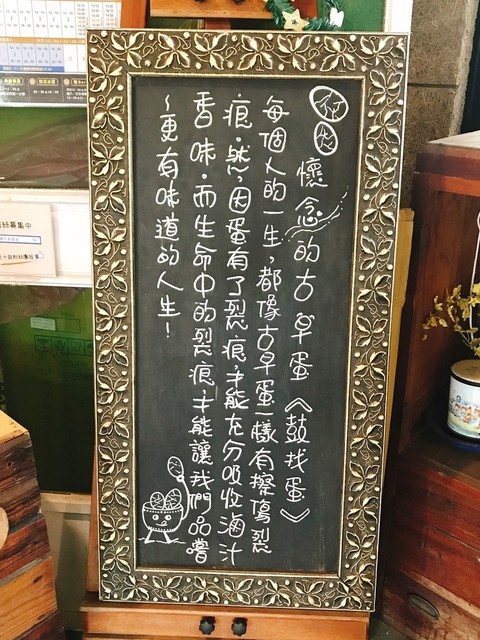 懷念的古早蛋《鼓找蛋》
每個人的一生,都像古早蛋一樣有擦傷裂
痕,然,因蛋有了裂痕,才能充分吸收滷汁
香味。而生命中的裂痕才能讓我們品嘗
~更有味道的人生!
絲募集中